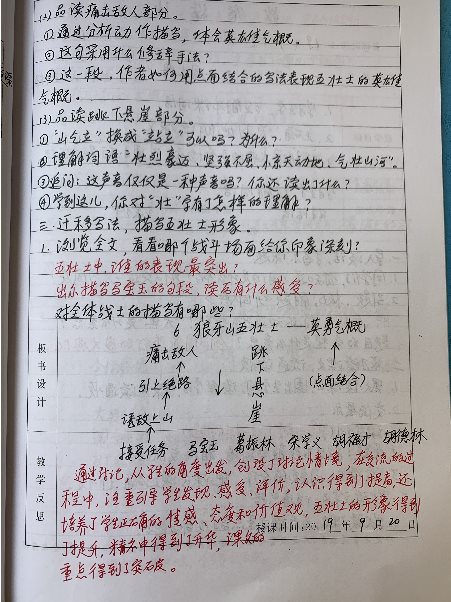 (2)品读痛击敌人部分。
①通过分析动作描写，体会英雄气概。
②这句采用什么修辞手法？
③这一段，作者如何用点面结合的写法表现五壮士的英雄
气概。
(3)品读跳下悬崖部分。
①"屹立"换成"站立"可以吗？为什么？
②理解词语"壮烈豪迈、坚强不屈、惊天动地、气壮山河"。
③追问：这声音仅仅是一种声音吗？你还读出了什么？
④学到这儿，你对"壮"字有了怎样的理解？
三、迁移写法，描写五壮士形象。
1、浏览全文，看看哪个战斗场面给你印象深刻？
五壮士中，谁的表现最突出？
出示描写马宝玉的句段，读后有什么感受？
对全体战士的描写有哪些？
板书设计
6 狼牙山五壮士——英勇气概
痛击敌人 跳
引上绝路 下
悬 (点面结合)
诱敌上山 崖
接受任务 马宝玉 葛振林 宋学义 胡福才 胡德林
教学反思
通过讨论，从学生的角度出发，创设了讨论情境，在交流的过
程中，注重引导学生发现、感受、评价，认识得到了提高，还
培养了学生正确的情感、态度和价值观，五壮士的形象得到
授课时间：2019年9月20日
了提升，精神中得到了升华，课文的
重点得到了突破。